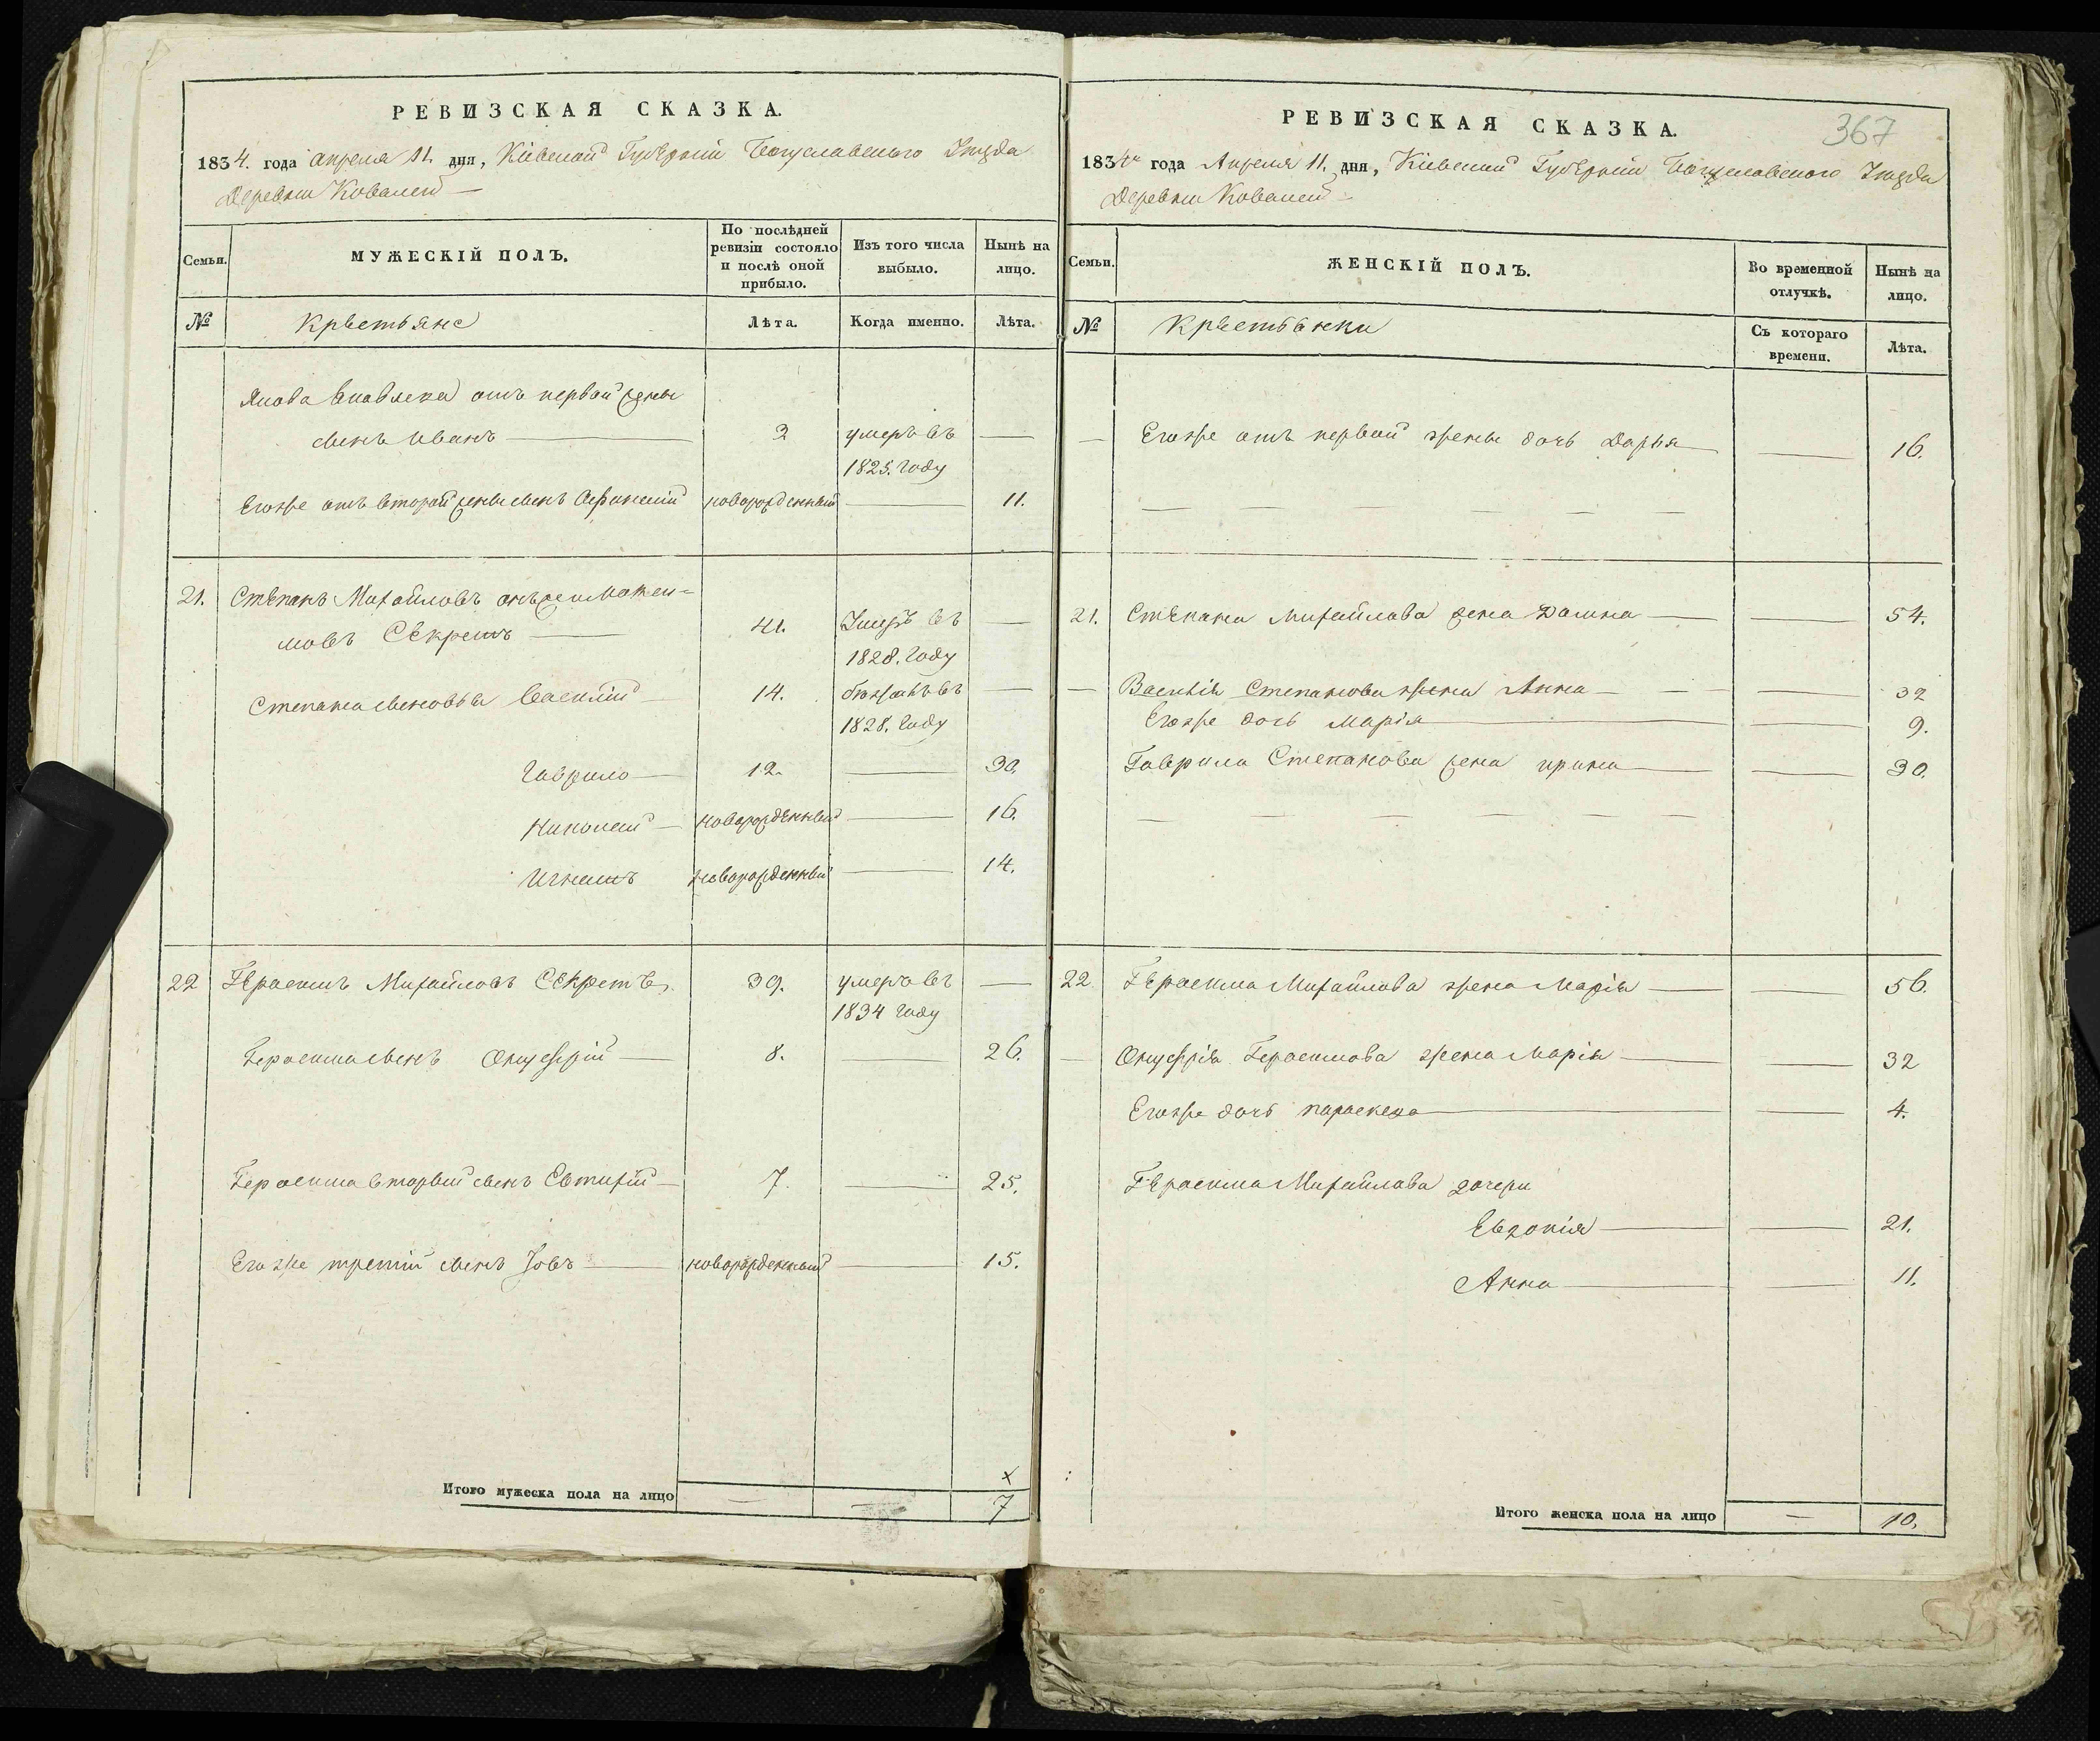 РЕВИЗСКАЯ СКАЗКА.
1834. года апреля 11. дня, Кіевской Губерніи Богуславского Уезда
Деревни Ковалей
Семьи.
МУЖЕСКІЙ ПОЛЪ.
По послѣдней ревизіи состояло и послѣ оной прибыло.
Изъ того числа выбыло.
Нынѣ на лицо.
№
Крѣстьяне
Лѣта.
Когда именно.
Лѣта.
Якова Яковлева отъ первой жены
сынъ Иванъ 2 умеръ въ
1825. году
Егоже отъ второй жены сынъ Афанасій новорожденный 11.
21. Стѣпанъ Михайловъ
Сѣкретъ 41. Умеръ въ
1828. году
Степана сыновья Василій 14. бѣжалъ въ
1828. году
Гаврило 12. 30.
Николай новорожденный 16.
Игнатъ новорожденный 14.
22 Гѣрасимъ Михайловъ Сѣкретъ 39. умеръ въ
1834 году
Герасима сынъ Онуфрій 8. 26.
Герасима вторый сынъ Евтихій 7. 25.
Егоже третій сынъ Іовъ новорожденный 15.
Итого мужеска пола на лицо
x
7
367
РЕВИЗСКАЯ СКАЗКА.
1834 года Апреля 11. дня, Кіевской Губерніи Богуславского Уезда
Деревни Ковалей
Семьи.
ЖЕНСКІЙ ПОЛЪ.
Во временной отлучкѣ.
Нынѣ на лицо.
№
Крѣстьянки
Съ котораго времени.
Лѣта.
Егоже отъ первой жены дочь Дарья 16.
21. Стѣпана Михайлова жена Домна 54.
Василія Степанова жена Анна 32
Егоже дочь Марія 9.
Гаврила Степанова жена ирина 30.
22. Гѣрасима Михайлова жена Марія 56.
Онуфрія Герасимова жена Марія 32
Егоже дочь параскева 4.
Гѣрасима Михайлова дочери
Евдокія 21.
Анна 11.
Итого женска пола на лицо 10.